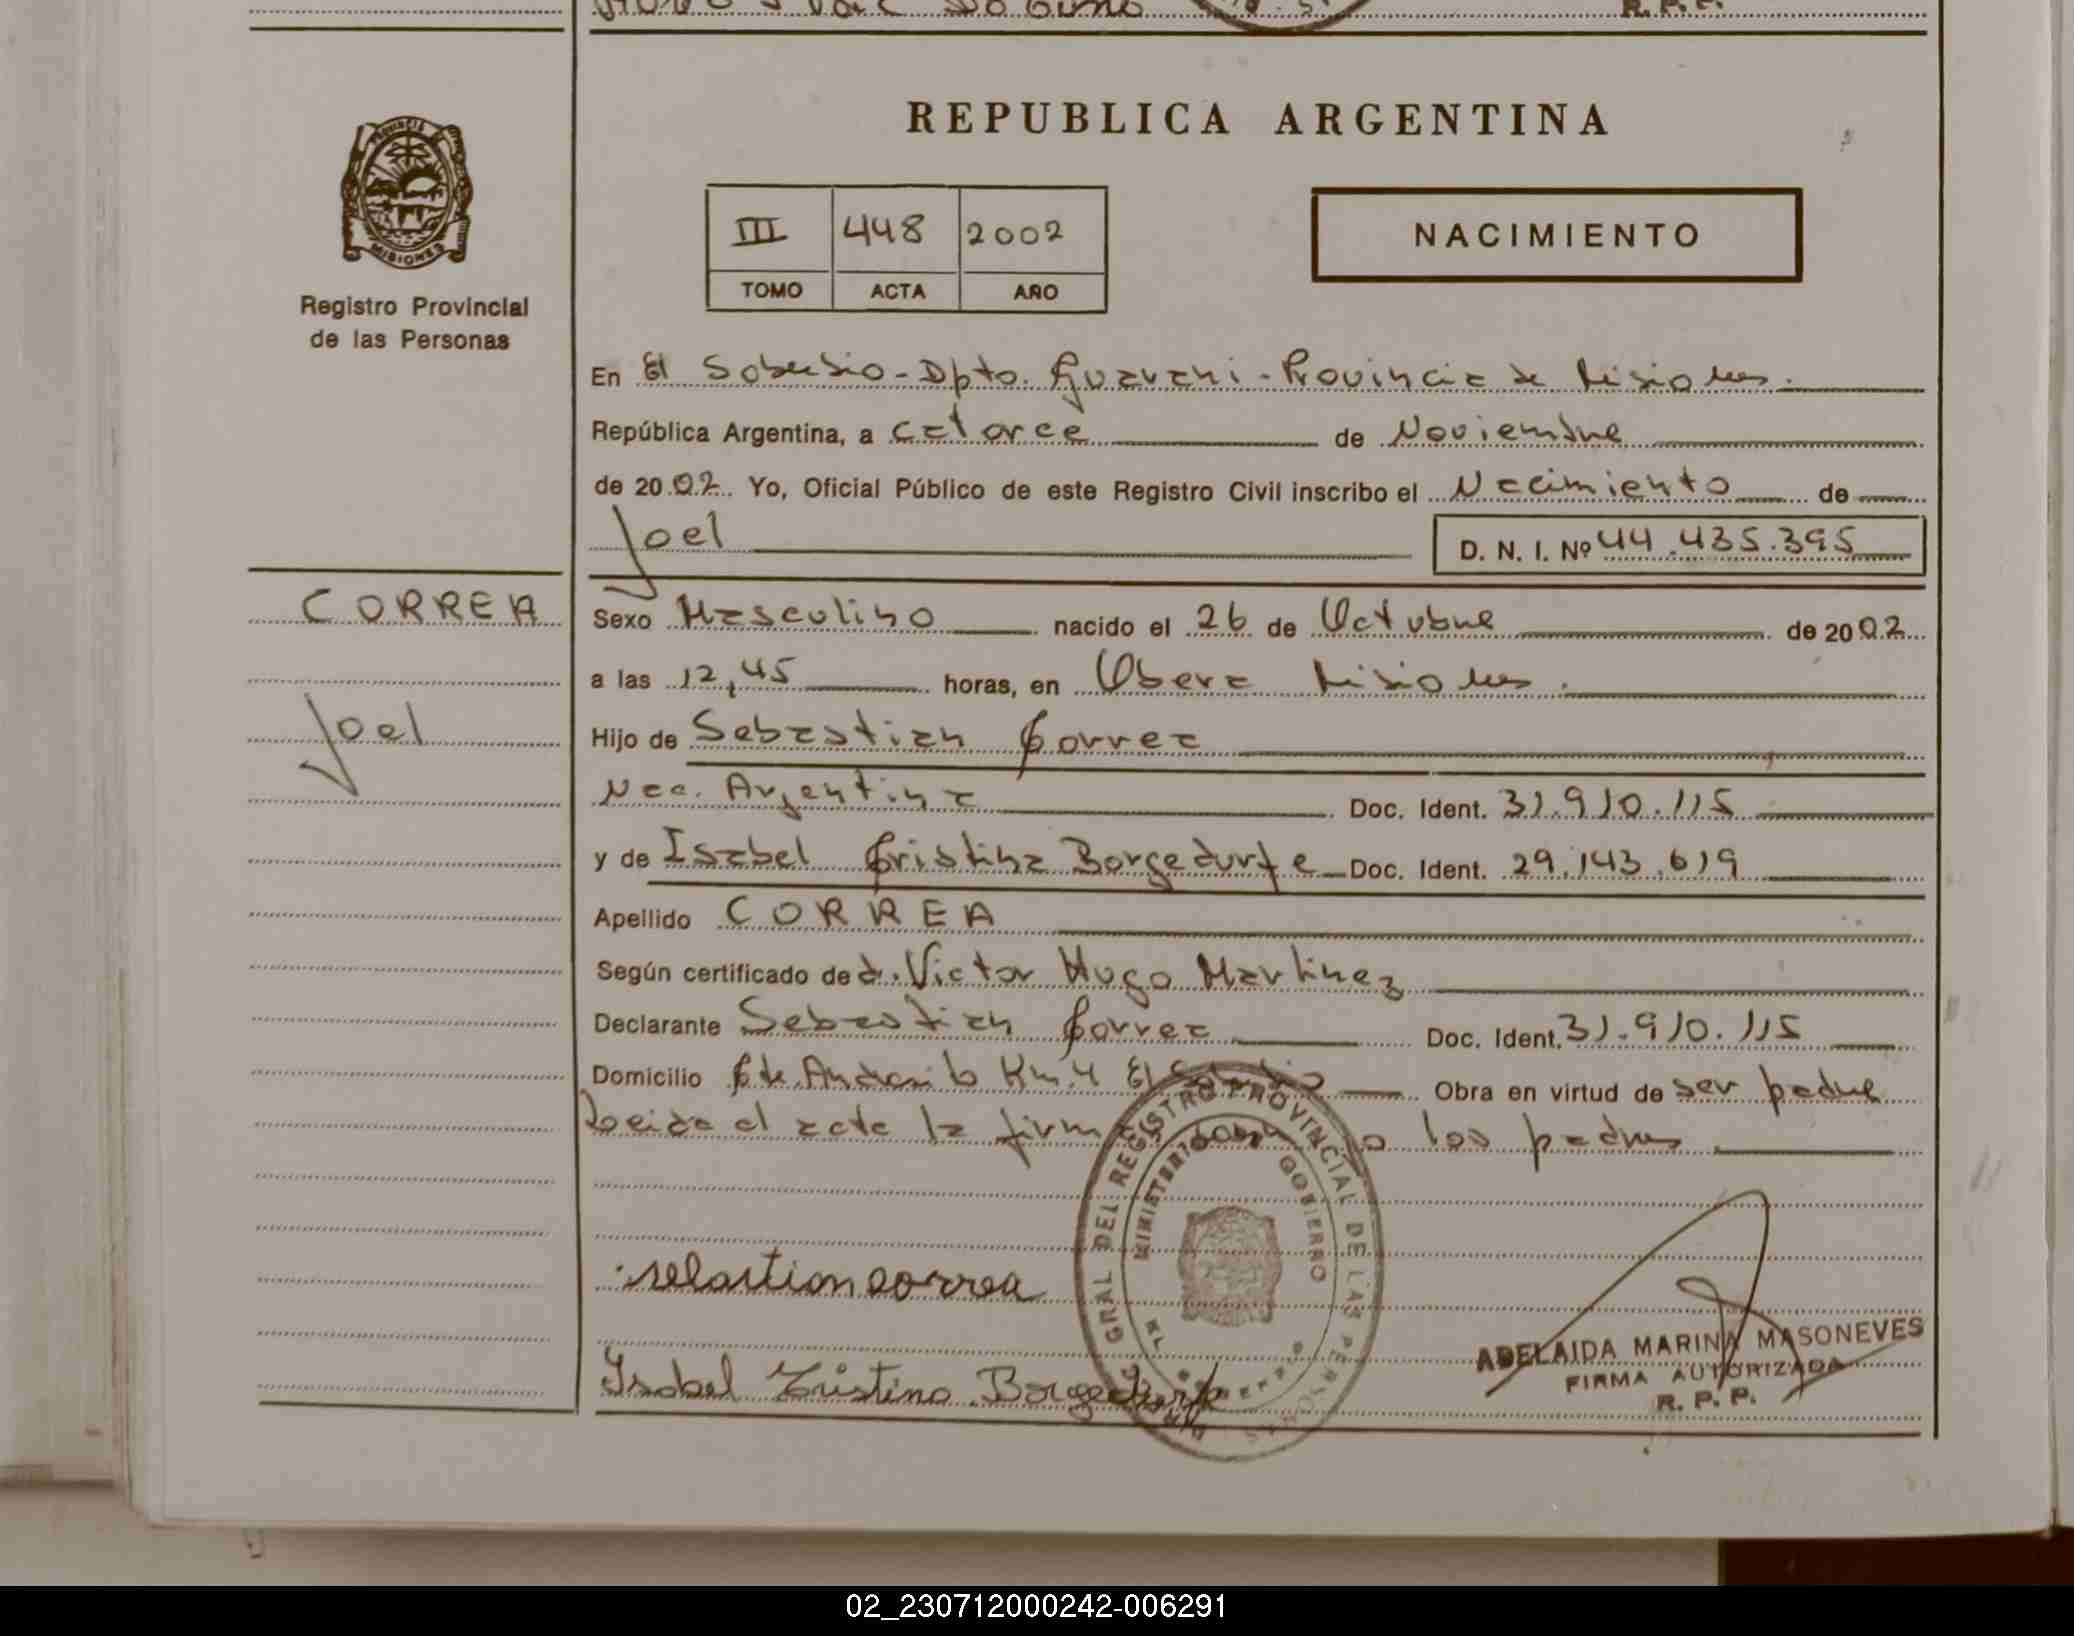 REPUBLICA ARGENTINA
PROVINCIA
MISIONES
Registro Provincial
de las Personas
III 448 2002
TOMO ACTA AÑO
NACIMIENTO
En El Soberbio - Dpto. Guarani - Provincia de Misiones.
República Argentina, a catorce de Noviembre
de 2002. Yo, Oficial Público de este Registro Civil inscribo el Nacimiento de
Joel D. N. I. Nº 44.435.395
CORREA
Joel
Sexo Masculino nacido el 26 de Octubre de 2002
a las 12,45 horas, en Obera Misiones.
Hijo de Sebastian Correa
Nac. Argentina Doc. Ident. 31.910.115
y de Isabel Cristina Borgedurfe Doc. Ident. 29.143.619
Apellido CORREA
Según certificado de dr. Victor Hugo Martinez
Declarante Sebastian Correa Doc. Ident. 31.910.115
Domicilio Km. 4 El Soberbio Obra en virtud de ser padre
Leida el acta la firm los padres
GRAL DEL REGISTRO PROVINCIAL DE LAS PERSONAS
MINISTERIO GOBIERNO
sebastian correa
Isabel Cristina Borgedurfe
ADELAIDA MARINA MASONEVES
FIRMA AUTORIZADA
R. P. P.
02_230712000242-006291